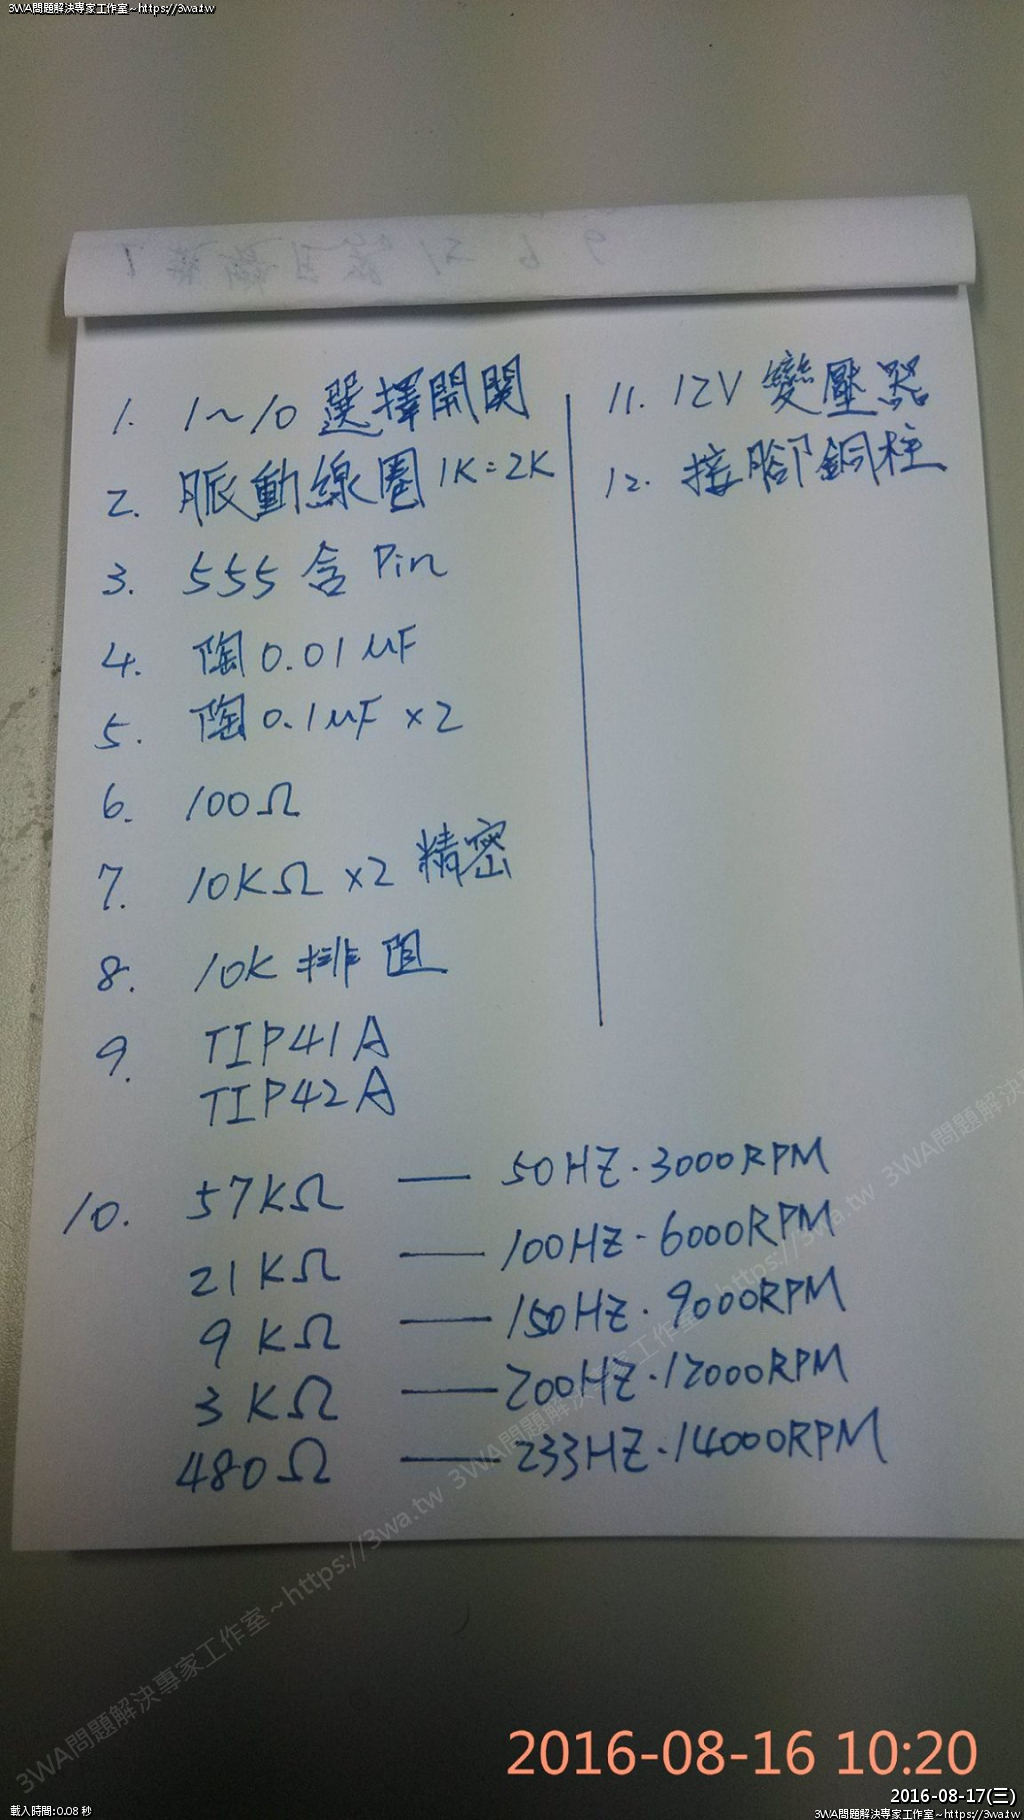 3WA問題解決專家工作室~https://3wa.tw
1. 1~10 選擇開関
2. 脈動線圈 1K:2K
3. 555 含 Pin
4. 陶 0.01 μF
5. 陶 0.1 μF ×2
6. 100Ω
7. 10KΩ ×2 精密
8. 10K 排阻
9. TIP41A
TIP42A
10. 57KΩ — 50HZ·3000RPM
21KΩ — 100HZ·6000RPM
9KΩ — 150HZ·9000RPM
3KΩ — 200HZ·12000RPM
480Ω — 233HZ·14000RPM
11. 12V 變壓器
12. 接腳銅柱
3WA問題解決專家工作室~https://3wa.tw 3WA問題解決專家工作室~https://3wa.tw 3WA問題解決
2016-08-16 10:20
2016-08-17(三)
載入時間:0.08 秒
3WA問題解決專家工作室~https://3wa.tw